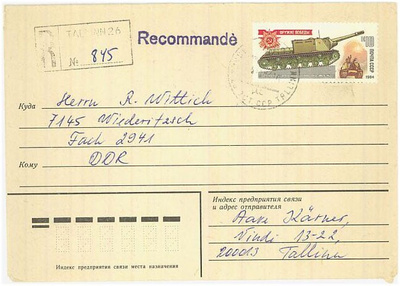 TALLINN 26
№ 845
Recommandé
ОРУЖИЕ ПОБЕДЫ
ПОЧТА СССР
1984
TALLINN
Куда
Herrn R. Wittich
7145 Wiederitzsch
Fach 2941
Кому
DDR
Индекс предприятия связи
и адрес отправителя
Aare Kärner,
Vindi 13-22,
200013 Tallinn
Индекс предприятия связи места назначения